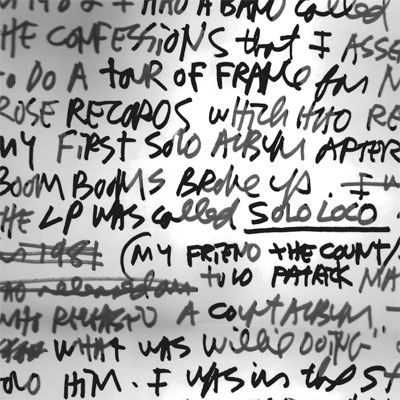 1982 I HAD A BAND called
HE CONFESSIONS that I ASSE
O DO A tour OF FRANCE for
ROSE RECORDS which HAD RE
MY FIRST SOLO ALBUM AFTER
BOOM BOOMS BROKE UP. I
HE LP WAS called SOLO LOCO
in 1981 (MY FRIEND THE COUNT/
told PATRICK MA
WHO RELEASED A COUNT ALBUM -
WHAT WAS WILLIE DOING"
OLD HIM. I WAS in the ST